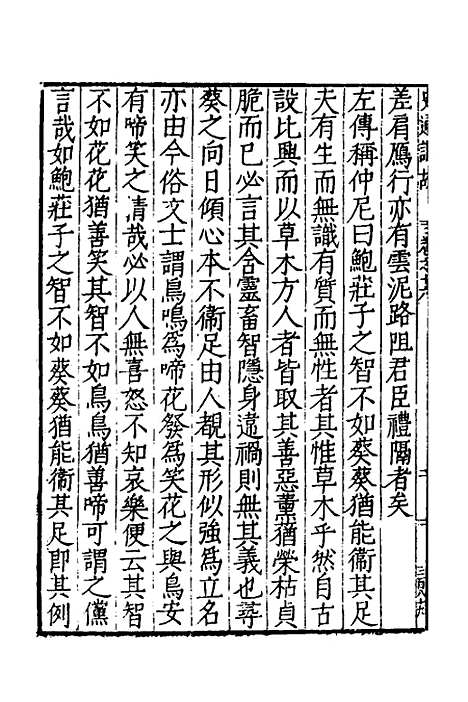 差肩鴈行亦有雲泥路阻君臣禮隔者矣
左傳稱仲尼曰鮑莊子之智不如葵葵猶能衞其足
夫有生而無識有質而無性者其惟草木乎然自古
設比興而以草木方人者皆取其善惡薰蕕榮枯貞
脆而已必言其含靈畜智隱身遠禍則無其義也尋
葵之向日傾心本不衞足由人覩其形似強爲立名
亦由今俗文士謂鳥鳴爲啼花發爲笑花之與鳥安
有啼笑之情哉必以人無喜怒不知哀樂便云其智
不如花花猶善笑其智不如鳥鳥猶善啼可謂之讜
言哉如鮑莊子之智不如葵葵猶能衞其足即其例